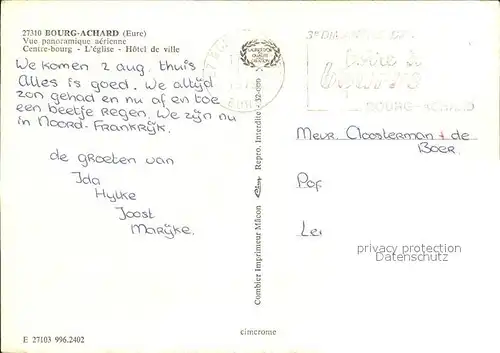 27310 BOURG-ACHARD (Eure)
Vue panoramique aérienne
Centre-bourg - L'église - Hôtel de ville
We komen 2 aug. thuis
Alles is goed. We altijd
zon gehad en nu af en toe
een beetje regen. We zijn nu
in Noord-Frankrijk.
de groeten van
Ida
Hylke
Joost
Marijke.
E 27103 996.2402
Combier Imprimeur Mâcon
Repro. Interdite
cimerome
BOURG-ACHARD
Mevr. Cloosterman + de
Boer
Pof
Lei
privacy protection
oldthing.com